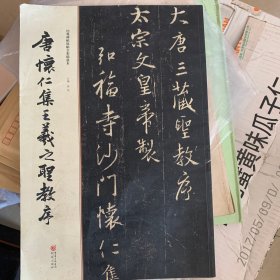 大唐三藏聖教序
太宗文皇帝製
弘福寺沙門懷仁集
唐懷仁集王羲之聖教序
黄味瓜子仁
2017/05/09